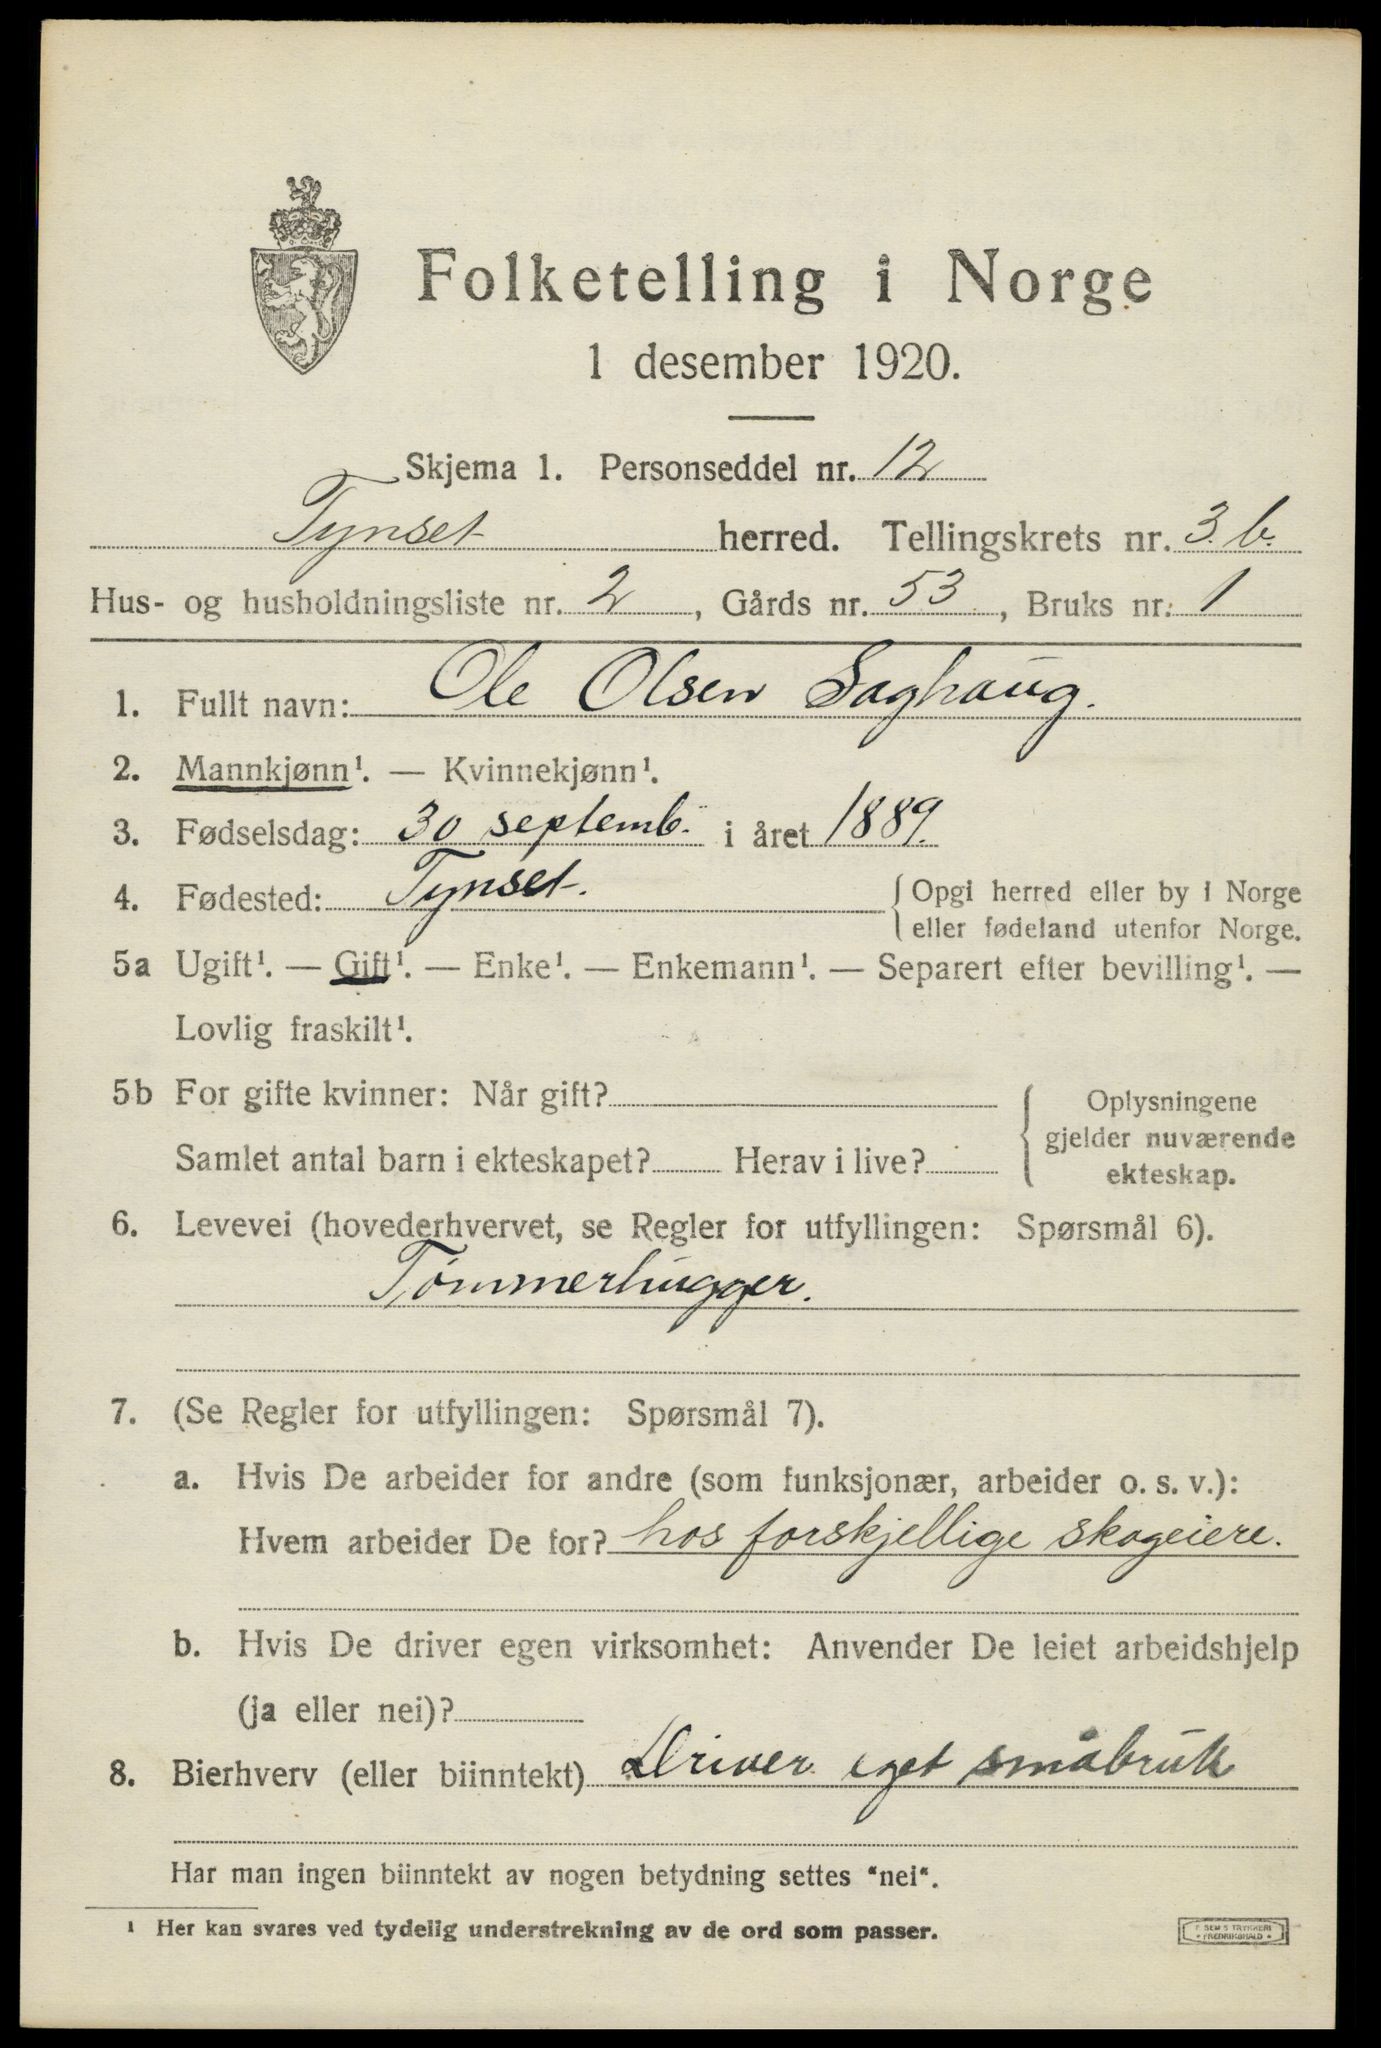 Folketelling i Norge
1 desember 1920.
Skjema 1. Personseddel nr. 12
Tynset herred. Tellingskrets nr. 3.b.
Hus- og husholdningsliste nr. 2, Gårds nr. 53, Bruks nr. 1
1. Fullt navn: Ole Olsen Saghaug.
2. Mannkjønn¹. — Kvinnekjønn¹.
3. Fødselsdag: 30 septemb. i året 1889.
4. Fødested: Tynset. { Opgi herred eller by i Norge
eller fødeland utenfor Norge.
5a Ugift¹. — Gift¹. — Enke¹. — Enkemann¹. — Separert efter bevilling¹. —
Lovlig fraskilt¹.
5b For gifte kvinner: Når gift?
Samlet antal barn i ekteskapet? Herav i live?
{ Oplysningene
gjelder nuværende
ekteskap.
6. Levevei (hovederhvervet, se Regler for utfyllingen: Spørsmål 6).
Tømmerhugger.
7. (Se Regler for utfyllingen: Spørsmål 7).
a. Hvis De arbeider for andre (som funksjonær, arbeider o. s. v.):
Hvem arbeider De for? hos forskjellige skogeiere.
b. Hvis De driver egen virksomhet: Anvender De leiet arbeidshjelp
(ja eller nei)?
8. Bierhverv (eller biinntekt) Driver eget småbruk
Har man ingen biinntekt av nogen betydning settes "nei".
¹ Her kan svares ved tydelig understrekning av de ord som passer.
SEM'S TRYKKERI
FREDRIKSHALD